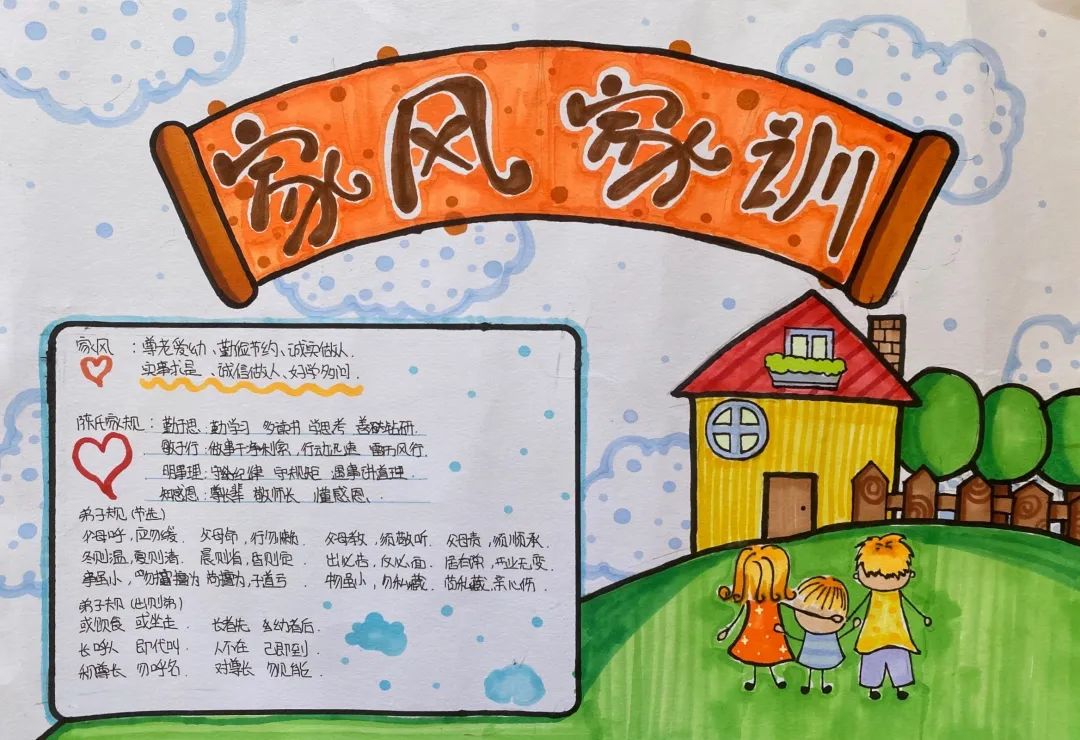 家风家训
家风：尊老爱幼、勤俭节约、诚实做人.
实事求是、诚信做人、好学多问.
陈氏家规：勤于思：勤学习 多读书 学思考 善于钻研
敏于行：做事干净利索，行动迅速 雷厉风行.
明事理：守纪律 守规矩 遇事讲道理.
知感恩：尊长辈 敬师长 懂感恩.
弟子规(节选)
父母呼，应勿缓. 父母命，行勿懒. 父母教，须敬听. 父母责，须顺承.
冬则温，夏则凊. 晨则省，昏则定. 出必告，反必面. 居有常，业无变.
事虽小，勿擅为 苟擅为，子道亏. 物虽小，勿私藏. 苟私藏，亲心伤.
弟子规(出则弟)
或饮食 或坐走. 长者先 幼者后.
长呼人 即代叫. 人不在 己即到.
称尊长 勿呼名. 对尊长 勿见能.